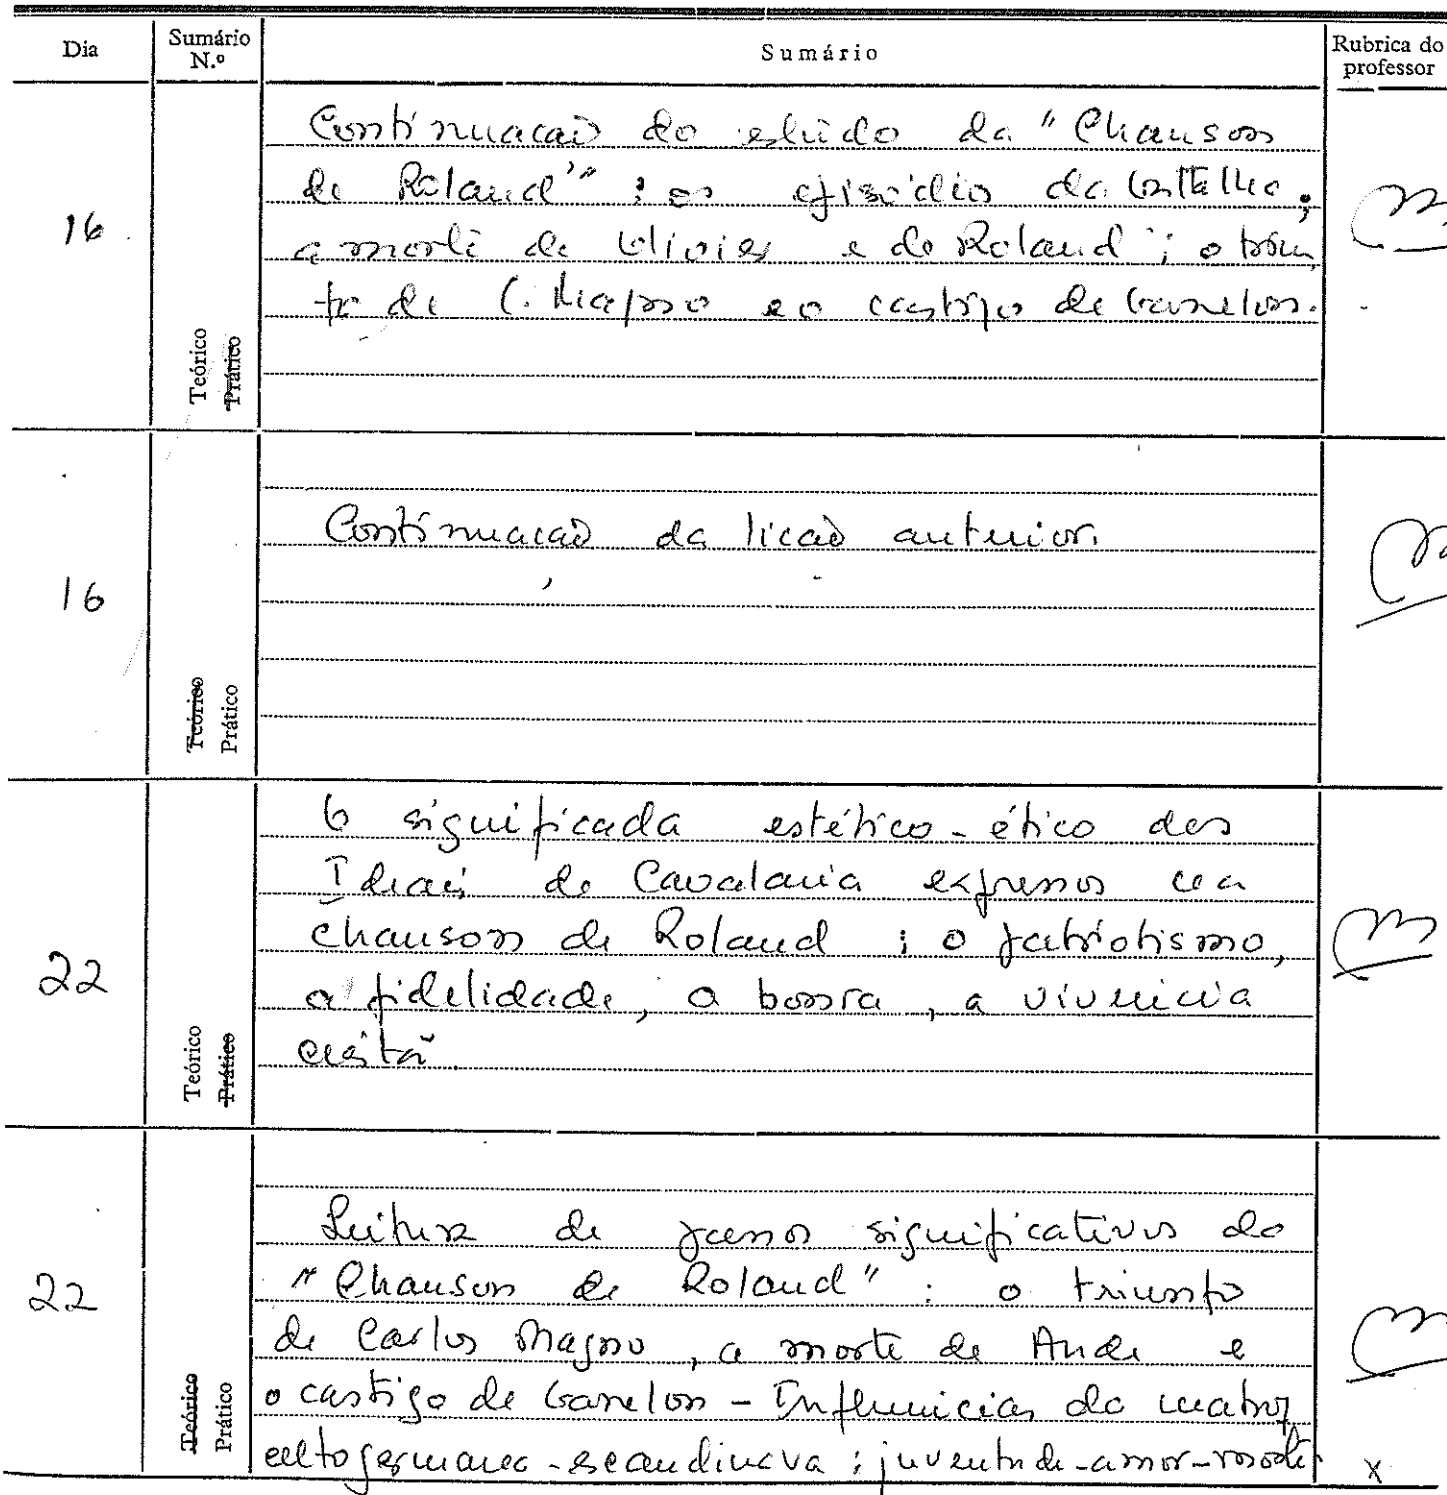 Dia
Sumário N.º
Sumário
Rubrica do professor
Continuação do estudo da "Chanson
de Roland" : os episódios da batalha;
a morte de Olivier e de Roland ; o triun
fo de C. Magno e o castigo de Ganelon.
16
Teórico
Prático
Continuação da lição anterior.
16
Teórico
Prático
O significado estético-ético dos
Ideais de Cavalaria expressos na
Chanson de Roland ; o patriotismo,
a fidelidade, a honra, a vivência
cristã
22
Teórico
Prático
Leitura de passos significativos da
"Chanson de Roland" : o triunfo
de Carlos Magno, a morte de Aude e
o castigo de Ganelon - Influências da matriz
celto germano-escandinava : juventude-amor-morte
22
Teórico
Prático
x